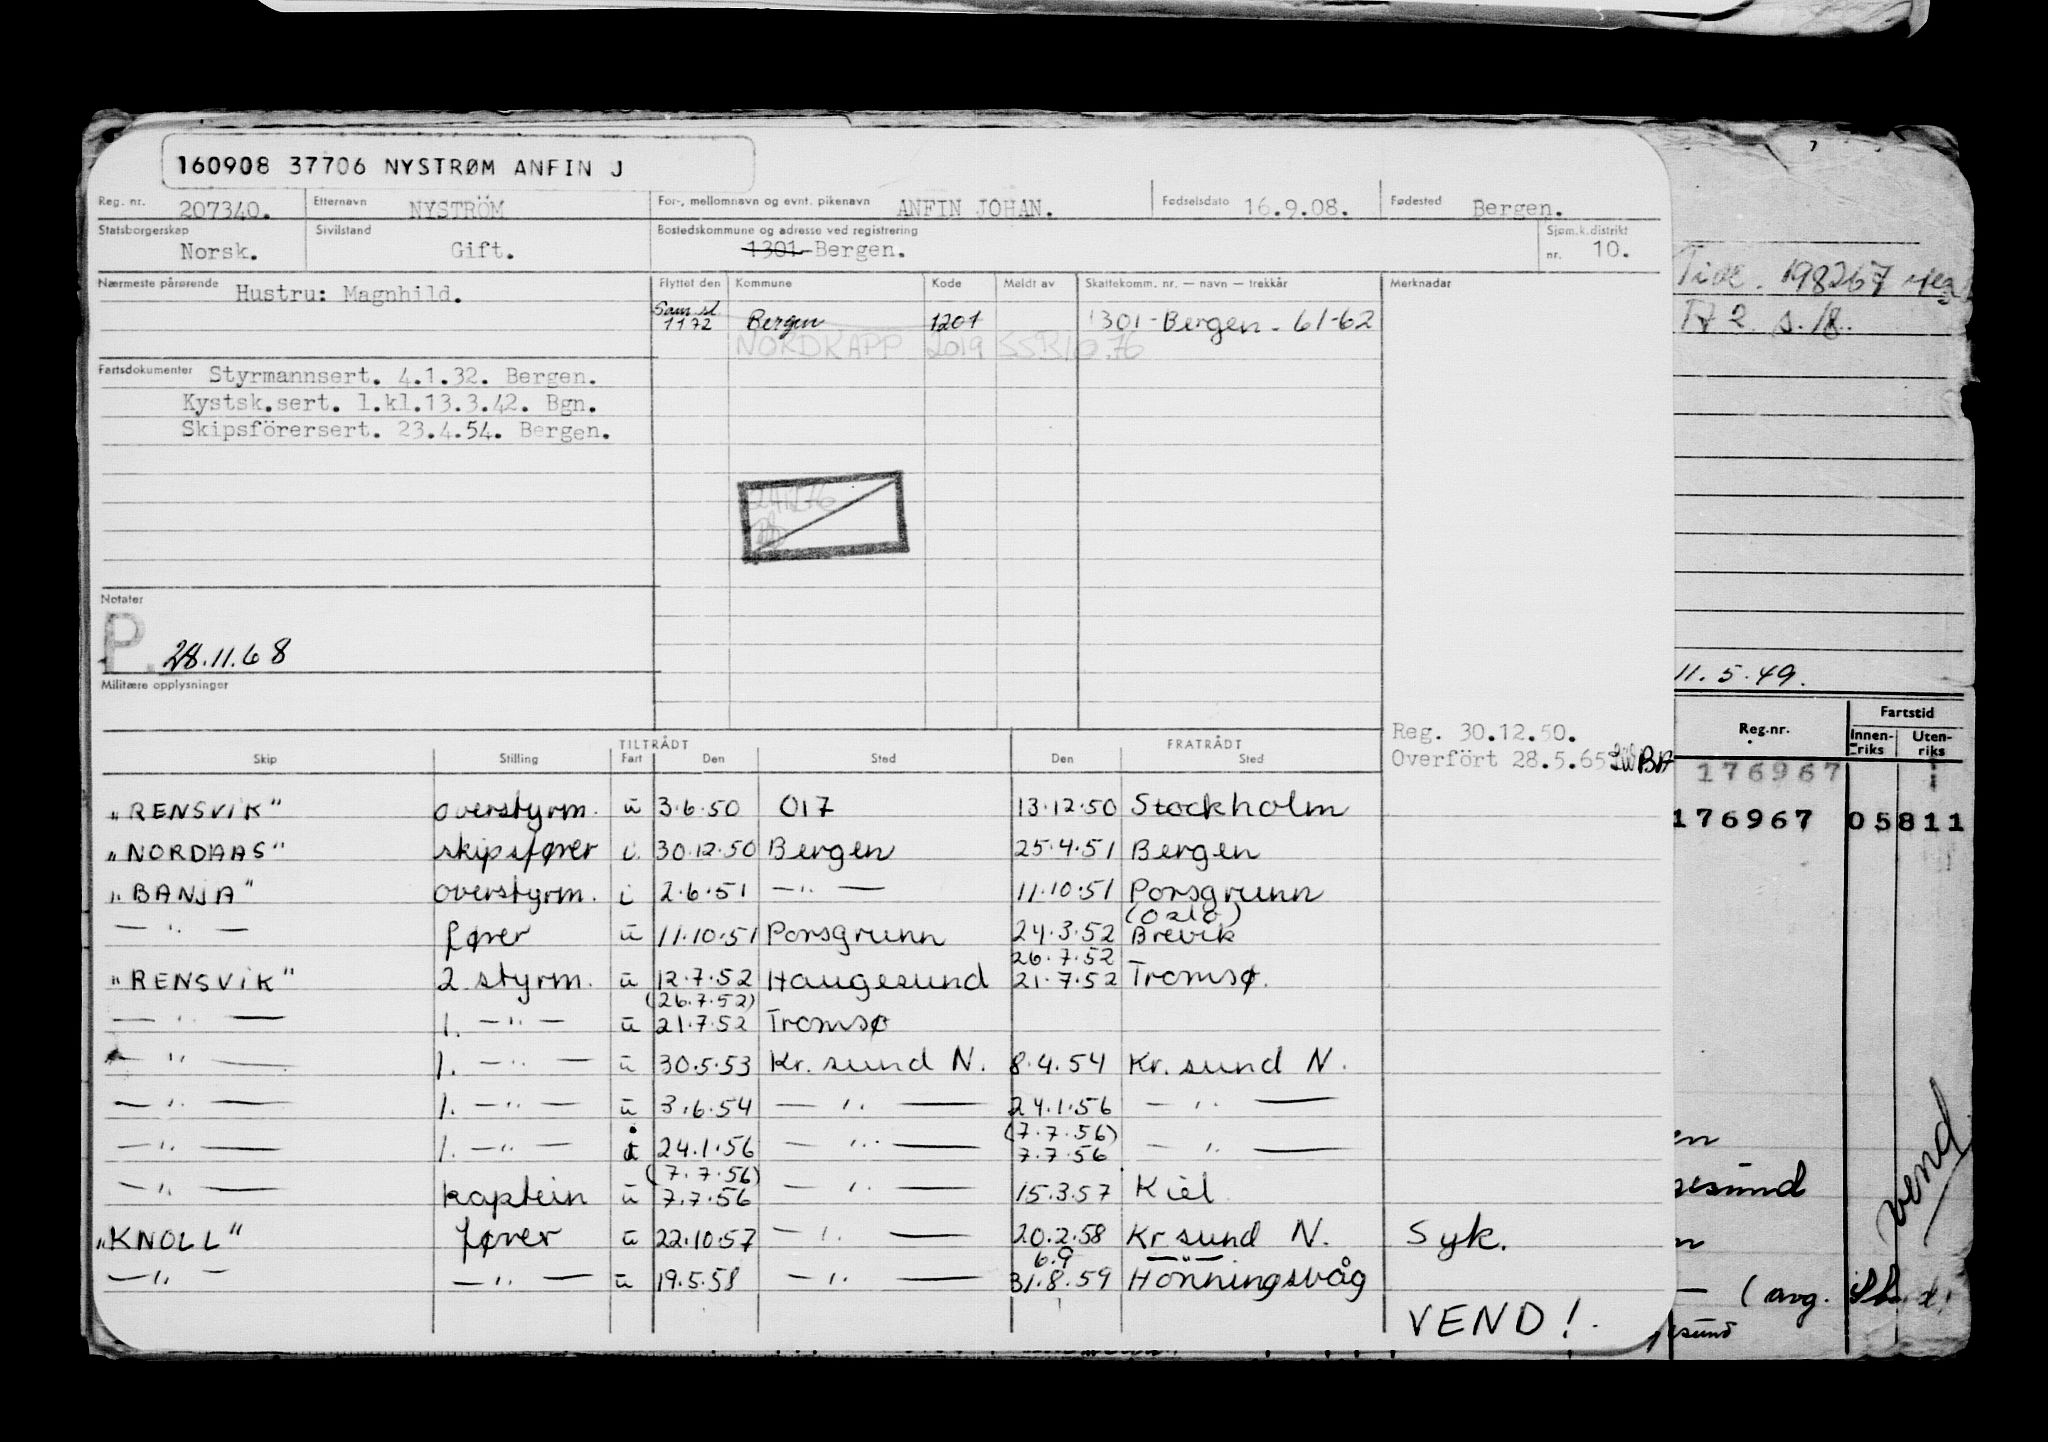 160908 37706 NYSTRØM ANFIN J
Reg. nr. 207340. Etternavn NYSTRÖM For-, mellomnavn og evnt. pikenavn ANFIN JOHAN. Fødselsdato 16.9.08. Fødested Bergen.
Statsborgerskap Norsk. Sivilstand Gift. Bostedskommune og adresse ved registrering 1301 Bergen. Sjøm.k.distrikt nr. 10.
Nærmeste pårørende Hustru: Magnhild. Flyttet den Kommune Kode Meldt av Skattekomm. nr. — navn — trekkår Merknadar
1172 Bergen 1201 1301 - Bergen - 61-62
NORDKAPP 2019
Fartsdokumenter Styrmannsert. 4.1.32. Bergen.
Kystsk.sert. 1.kl.13.3.42. Bgn.
Skipsförersert. 23.4.54. Bergen.
Notater
P. 28.11.68
Militære opplysninger
Reg. 30.12.50.
Overfört 28.5.65 BA
TILTRÅDT FRATRÅDT
Skip Stilling Fart Den Sted Den Sted
"RENSVIK" overstyrm. u 3.6.50 017 13.12.50 Stockholm
"NORDAAS" skipsfører i. 30.12.50 Bergen 25.4.51 Bergen
"BANJA" overstyrm. i 2.6.51 —"— 11.10.51 Porsgrunn
(Oslo)
—"— fører u 11.10.51 Porsgrunn 24.3.52 Brevik
26.7.52
"RENSVIK" 2 styrm. u 12.7.52 Haugesund 21.7.52 Tromsø.
(26.7.52)
—"— 1. —"— u 21.7.52 Tromsø
—"— 1. —"— u 30.5.53 Kr. sund N. 8.4.54 Kr. sund N.
—"— 1. —"— u 3.6.54 —"— 24.1.56 —"—
(7.7.56)
—"— 1. —"— i 24.1.56 —"— 7.7.56 —"—
(7.7.56)
—"— kaptein u 7.7.56 —"— 15.3.57 Kiel
"KNOLL" fører u 22.10.57 —"— 20.2.58 Kr sund N. Syk.
6.9 —"—
—"— —"— u 19.5.58 —"— 31.8.59 Honningsvåg
VEND!
198267
11.5.49.
Reg.nr. Fartstid
Innen-riks Uten-riks
176967
176967 05811
en
esund
vend
n
— (avg.
esund